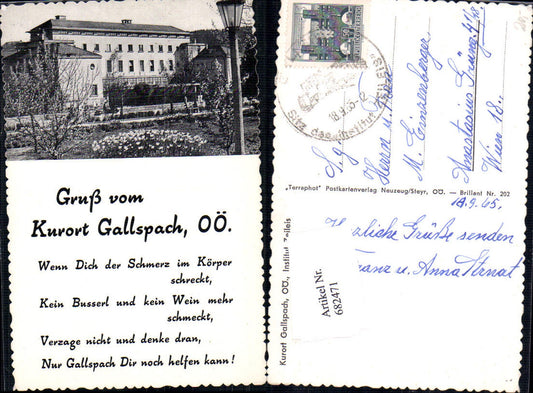 Gruß vom
Kurort Gallspach, OÖ.
Wenn Dich der Schmerz im Körper
schreckt,
Kein Busserl und kein Wein mehr
schmeckt,
Verzage nicht und denke dran,
Nur Gallspach Dir noch helfen kann!
Sitz des Institut
18.9.65
S. g.
Herrn u. Frau
M. Einsenberger
Anastasius Grüng.
Wien 18.,
„Terraphot" Postkartenverlag Neuzeug/Steyr, OÖ. — Brillant Nr. 202
18.9.65,
Kurort Gallspach, OÖ., Institut Zeileis
zliche Grüße senden
Franz u. Anna Sternat
Artikel Nr.
682471